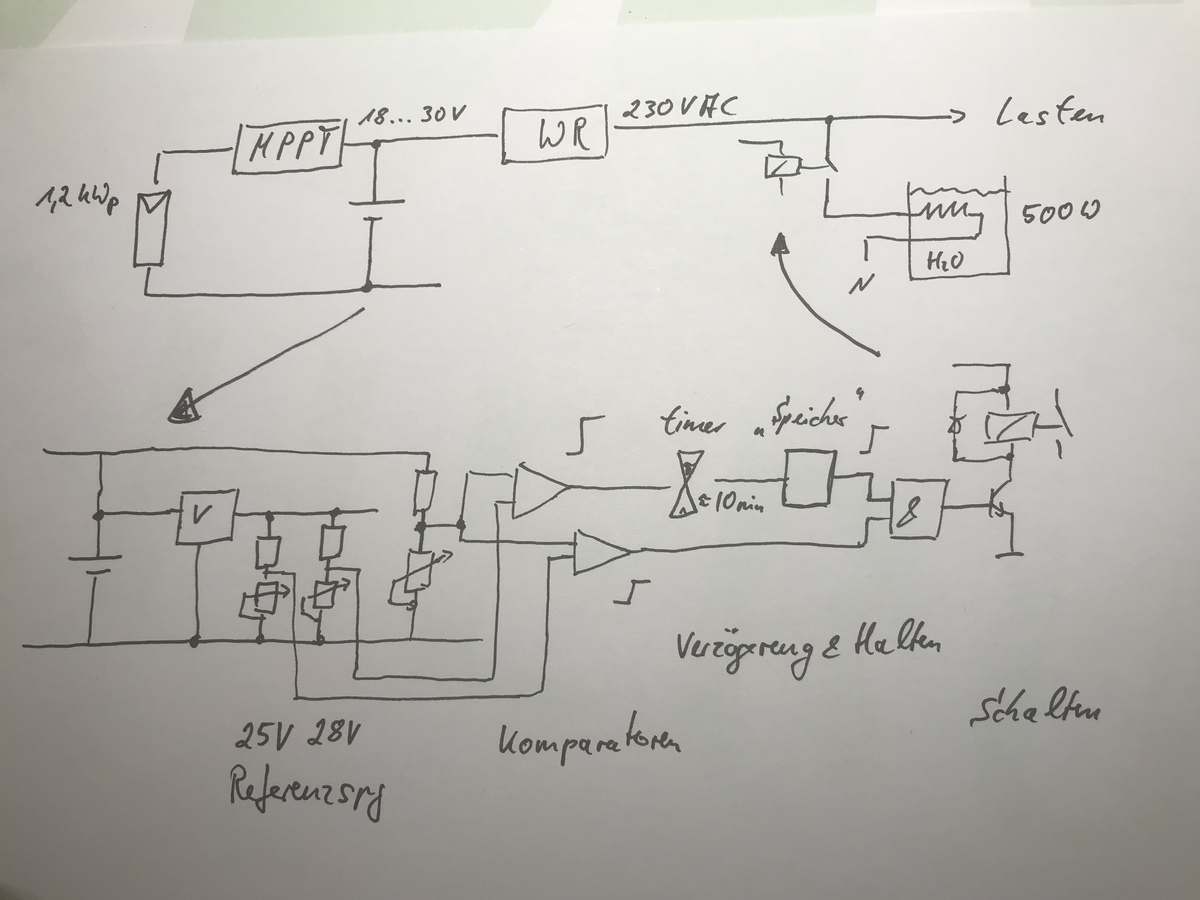 18...30V
230VAC
MPPT
WR
Lasten
1,2kWp
500W
H₂O
N
timer
„Speicher“
≈10min
V
&
Verzögerung & Halten
Schalten
25V 28V
Komparatoren
Referenzspg